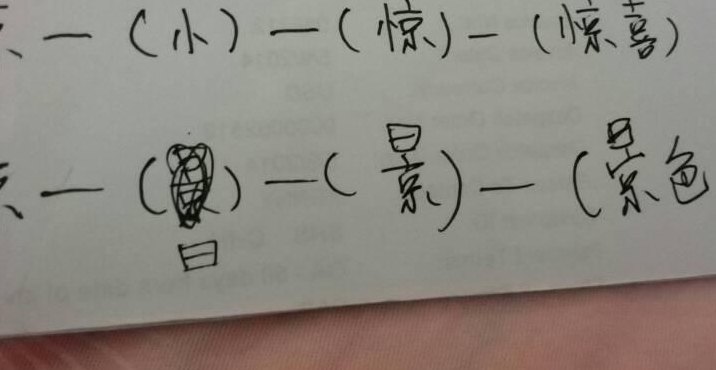 — (小) — (惊) — (惊喜)
— ( ) — (景) — (景色
日